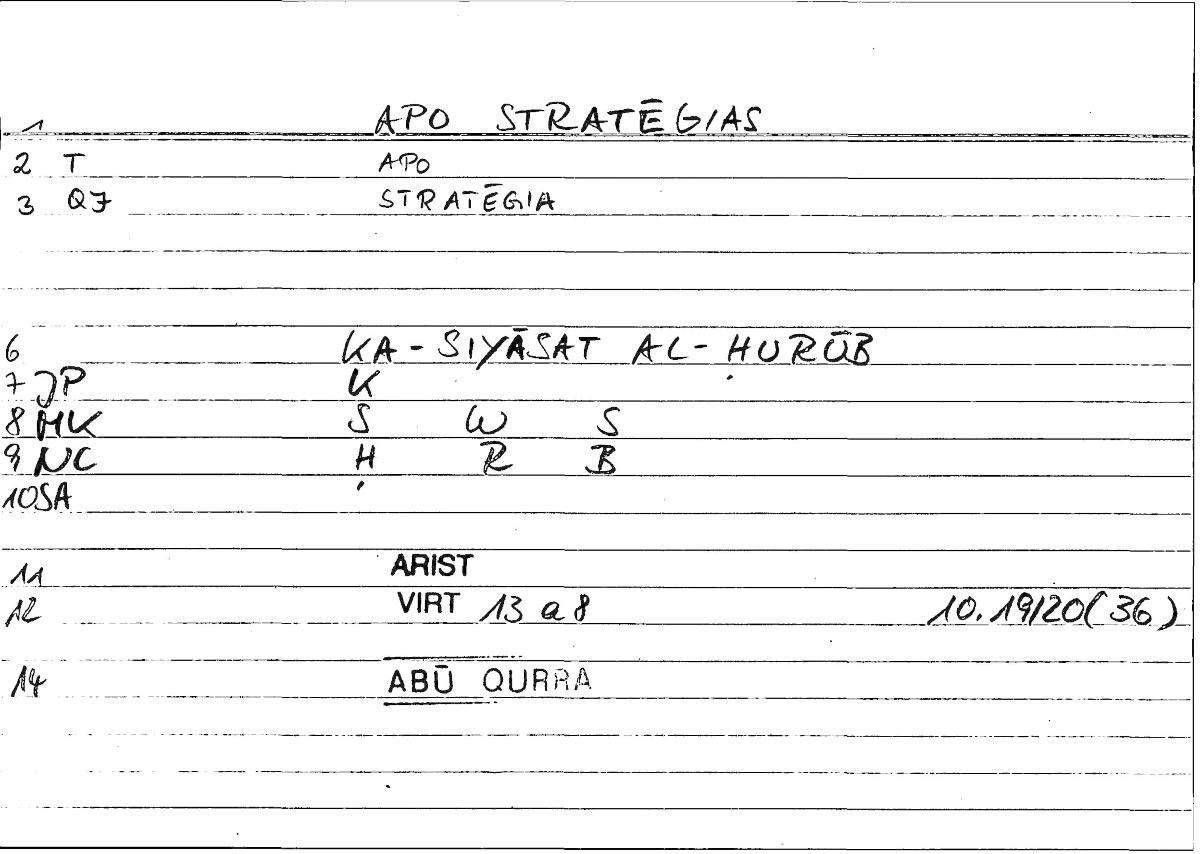 1 APO STRATĒGIAS
2 T APO
3 QJ STRATĒGIA
6 KA-SIYĀSAT AL-ḤURŪB
7 JP K
8 HK S W S
9 NC Ḥ R B
10 SA
11 ARIST
12 VIRT 13 a 8 10.19/20(36)
14 ABŪ QURRA